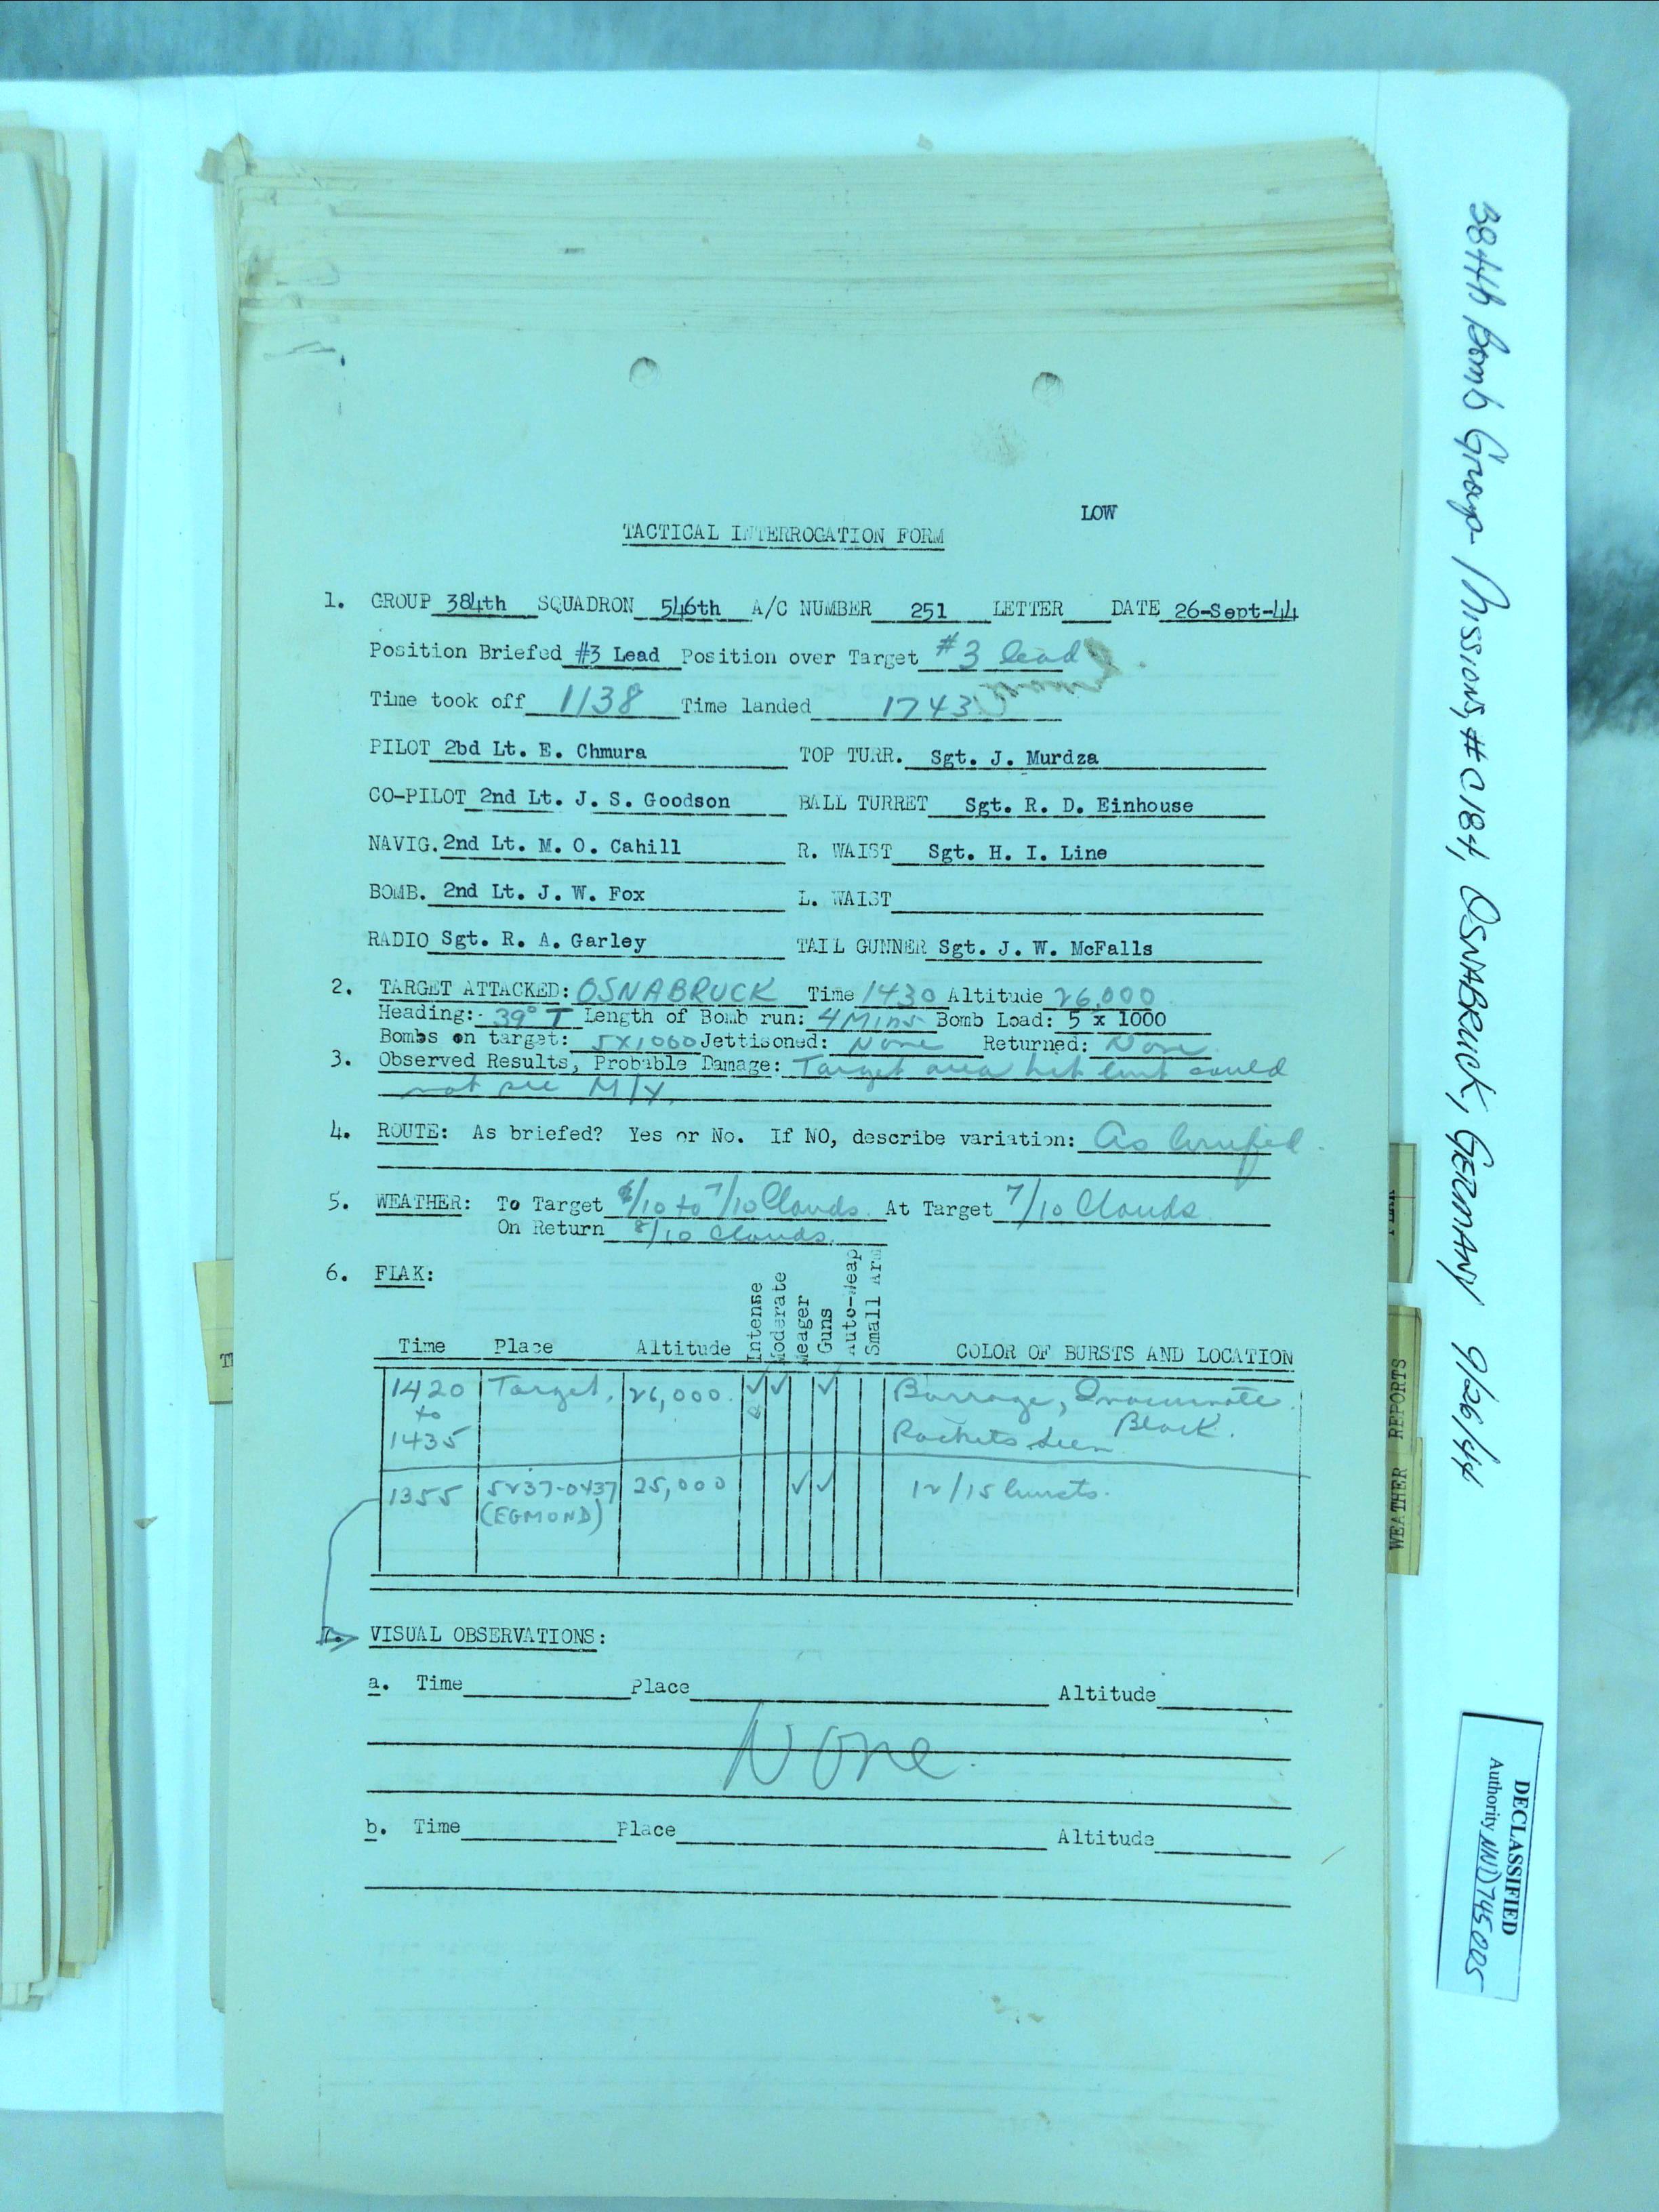 LOW
TACTICAL INTERROGATION FORM
1. GROUP 384th SQUADRON 546th A/C NUMBER 251 LETTER DATE 26-Sept-44
Position Briefed #3 Lead Position over Target #3 lead
Time took off 1138 Time landed 1743
PILOT 2bd Lt. E. Chmura TOP TURR. Sgt. J. Murdza
CO-PILOT 2nd Lt. J. S. Goodson BALL TURRET Sgt. R. D. Einhouse
NAVIG. 2nd Lt. M. O. Cahill R. WAIST Sgt. H. I. Line
BOMB. 2nd Lt. J. W. Fox L. WAIST
RADIO Sgt. R. A. Garley TAIL GUNNER Sgt. J. W. McFalls
2. TARGET ATTACKED: OSNABRUCK Time 1430 Altitude 26,000
Heading: 39° T Length of Bomb run: 4 Mins Bomb Load: 5 x 1000
Bombs on target: 5X1000 Jettisoned: None Returned: None
3. Observed Results, Probable Damage: Target area hit but could
not see M/Y.
4. ROUTE: As briefed? Yes or No. If NO, describe variation: As briefed.
5. WEATHER: To Target 6/10 to 7/10 Clouds. At Target 7/10 Clouds
On Return 8/10 Clouds.
6. FLAK:
Time Place Altitude Intense Moderate Meager Guns Auto-Weap Small Arm COLOR OF BURSTS AND LOCATION
1420 Target. 26,000. ✓ ✓ ✓ Barrage, Inaccurate.
to Black.
1435 Rockets seen
1355 5237-0437 25,000 ✓ ✓ 12/15 bursts.
(EGMOND)
7. VISUAL OBSERVATIONS:
a. Time Place Altitude
None.
b. Time Place Altitude
384th Bomb Group Missions, #C184, OSNABRUCK, GERMANY 9/26/44
WEATHER REPORTS
DECLASSIFIED
Authority NND 745005